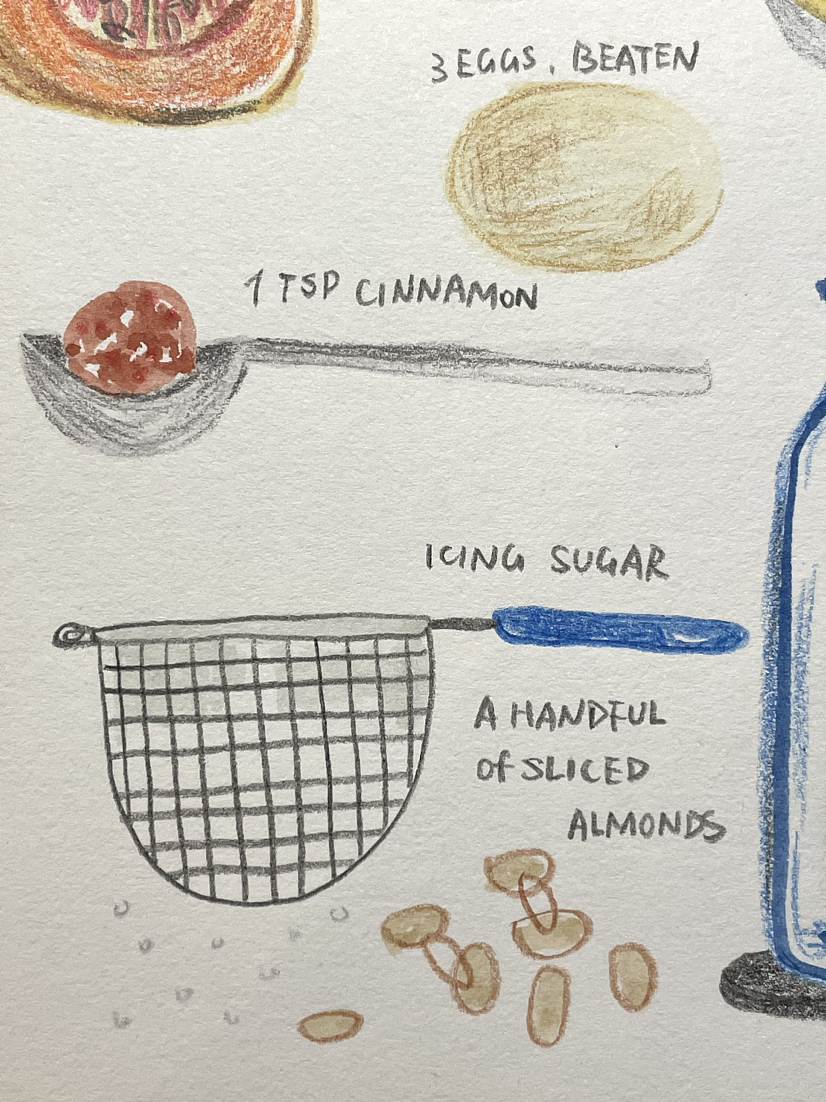 3 EGGS, BEATEN
1 TSP CINNAMON
ICING SUGAR
A HANDFUL
Of SLICED
ALMONDS